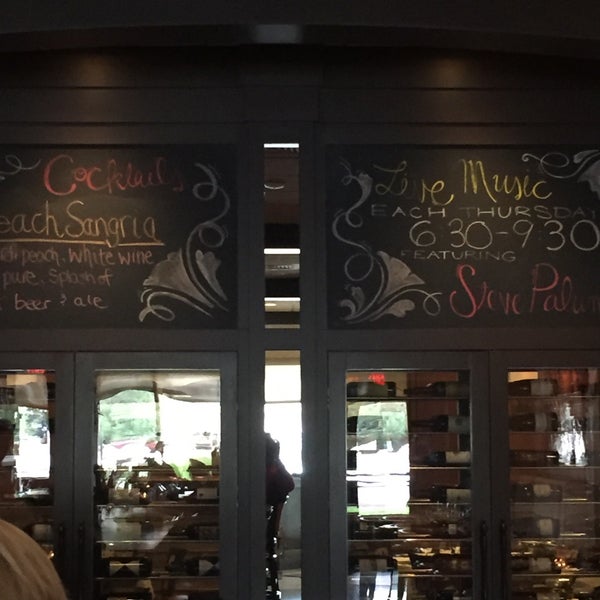 Cocktails
each Sangria
peach, White wine
pure, Splash of
beer & ale
Live Music
EACH THURSDA
6:30-9:30
FEATURING
Steve Palum